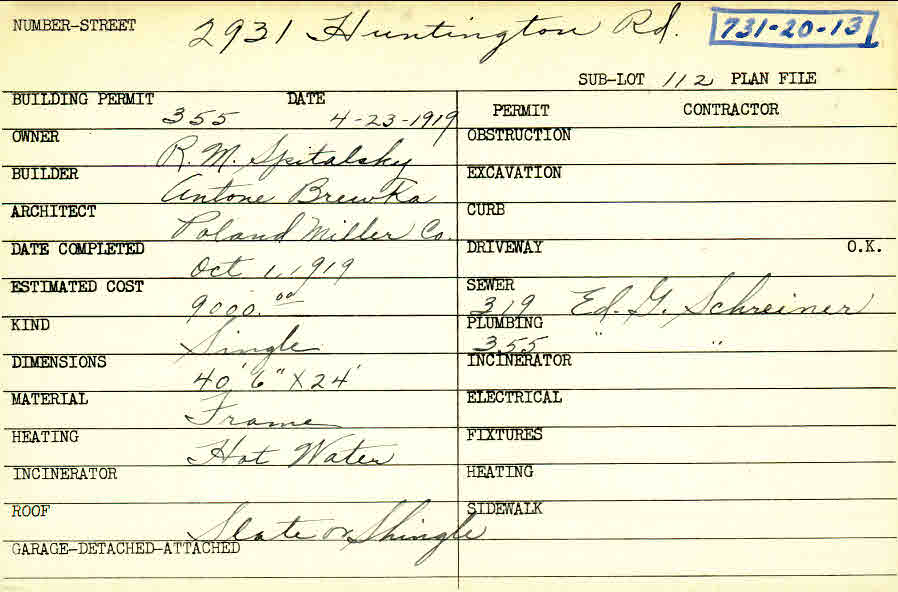 NUMBER-STREET 2931 Huntington Rd. 731-20-13
SUB-LOT 112 PLAN FILE
BUILDING PERMIT 355 DATE 4-23-1919
PERMIT CONTRACTOR
OWNER R. M. Spitalsky
OBSTRUCTION
BUILDER Antone Brewka
EXCAVATION
ARCHITECT Poland Miller Co.
CURB
DATE COMPLETED Oct 1, 1919
DRIVEWAY O.K.
ESTIMATED COST 9000.00
SEWER 319 Ed. G. Schreiner
KIND Single
PLUMBING 355 " "
DIMENSIONS 40' 6" X 24'
INCINERATOR
MATERIAL Frame
ELECTRICAL
HEATING Hot Water
FIXTURES
INCINERATOR
HEATING
ROOF Slate or Shingle
SIDEWALK
GARAGE-DETACHED-ATTACHED